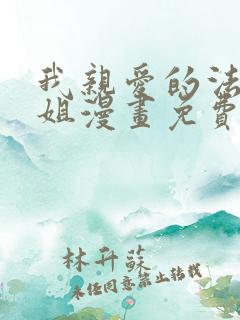 我親愛的法
姐漫畫免費
林升蔱
未经同意禁止转载